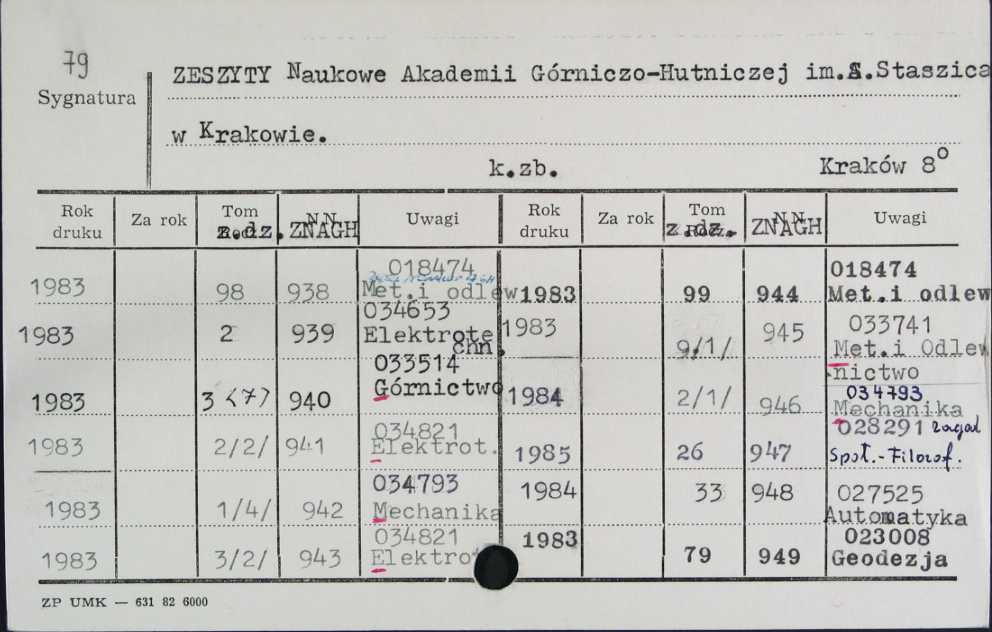 79
Sygnatura
ZESZYTY Naukowe Akademii Górniczo-Hutniczej im.S.Staszica
w Krakowie.
k.zb. Kraków 8°
Rok druku Za rok Tom z.dz. N.N. ZNAGH Uwagi Rok druku Za rok Tom z.dz. N.N. ZNAGH Uwagi
1983 98 938 018474 Met.i odlew
1983 2 939 034653 Elektrotechn.
1983 3 <7> 940 033514 Górnictwo
1983 2/2/ 941 034821 Elektrot.
1983 1/4/ 942 034793 Mechanika
1983 3/2/ 943 034821 Elektrot
1983 99 944 018474 Met.i odlew
1983 9/1/ 945 033741 Met.i Odlewnictwo
1984 2/1/ 946 034793 Mechanika
1985 26 947 028291 zagad Społ.-Filozof.
1984 33 948 027525 Automatyka
1983 79 949 023008 Geodezja
ZP UMK — 631 82 6000